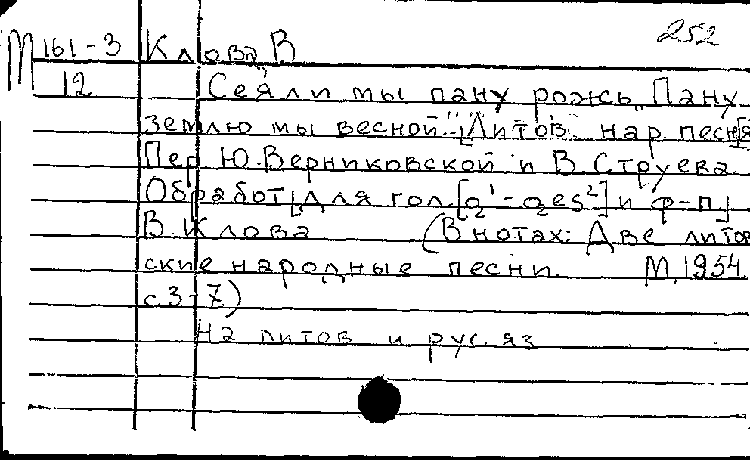 252
М 161-3 Клова, В
12 Сеяли мы пану рожь „Пану
землю мы весной". [Литов. нар. песня]
Пер. Ю. Верниковской и В. Струева.
Обработ[Для гол. [g¹-ges²] и ф-п]
В. Клова (В нотах: Две литов
ские народные песни. М, 1954.
с. 3-7)
На литов. и рус. яз.